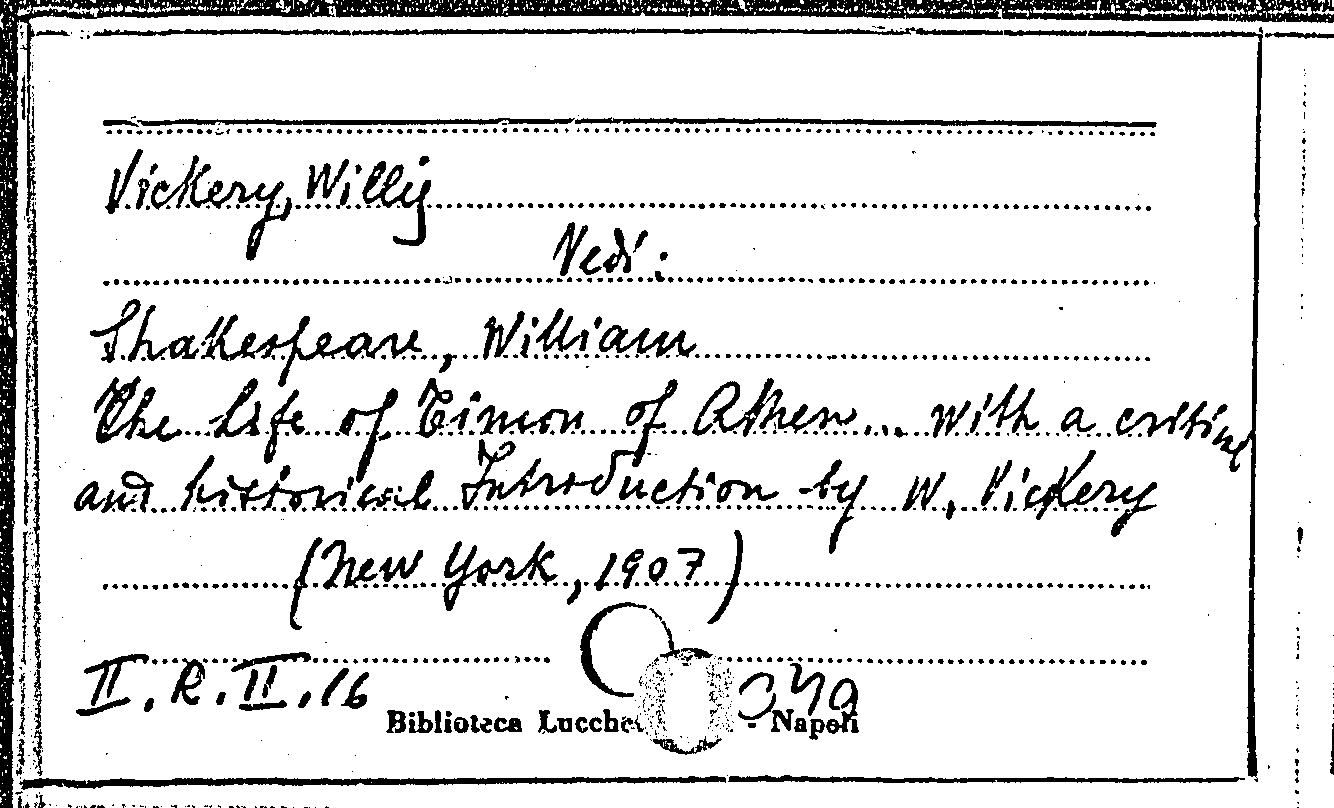 Vickery, Willij
Vedi:
Shakespeare, William
The Life of Timon of Athen... with a critical
and historical Introduction by W. Vickery
(New York, 1907)
II. R. II. 16
Biblioteca Lucche - Napoli